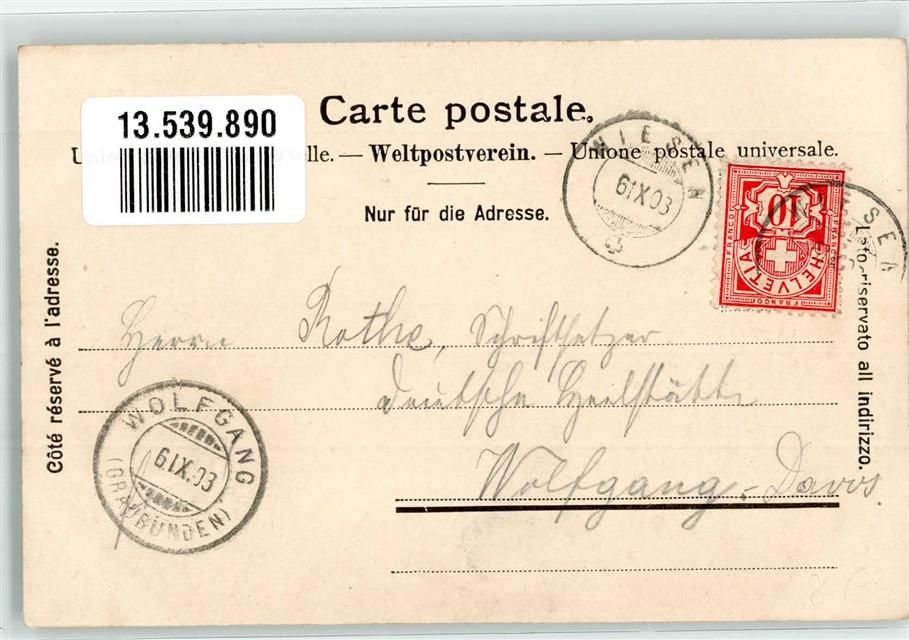 13.539.890
Carte postale.
lle. — Weltpostverein. — Unione postale universale.
Nur für die Adresse.
WIESEN
6 IX 03
FRANCO
10
HELVETIA
FRANCO
WIESEN
Côté réservé à l'adresse.
Lato riservato all indirizzo.
Herrn Rothe, Schriftsetzer
Deutsche Heilstätte
Wolfgang - Davos
WOLFGANG
6 IX. 03
(GRAUBÜNDEN)